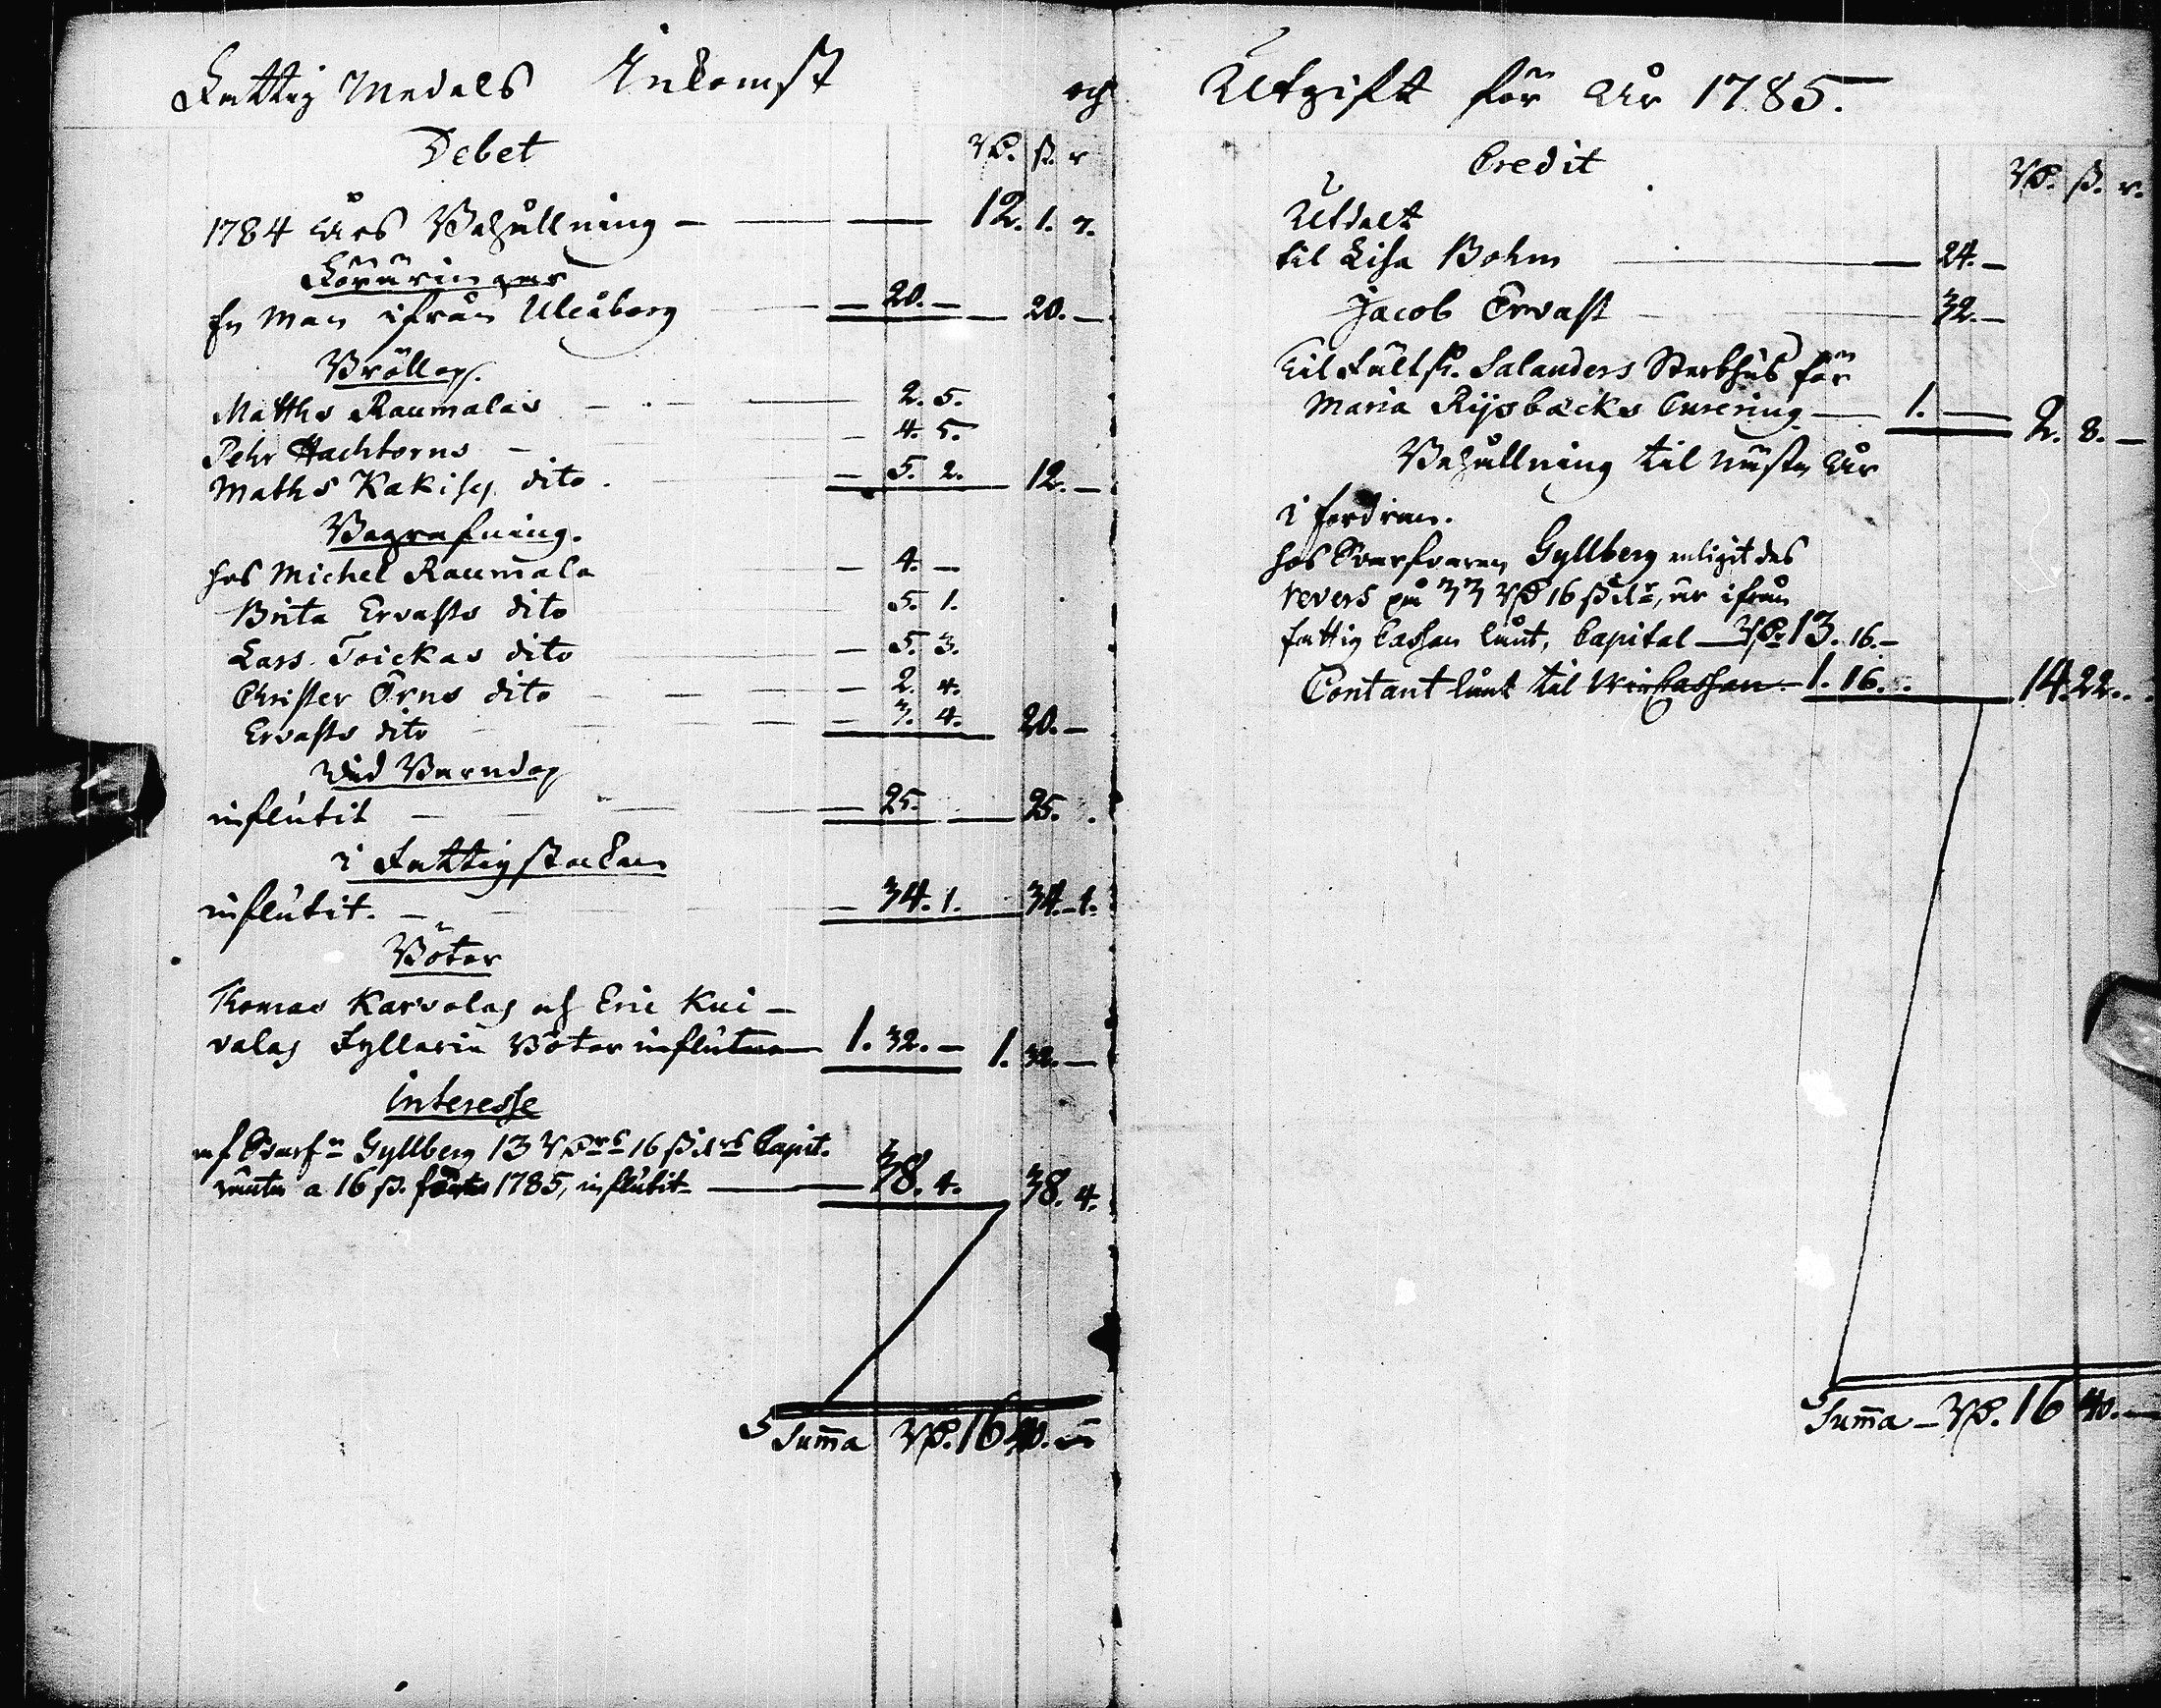 Fattig Medels Inkomst och
Debet
Rd. ß. r
1784 Års Behållning — 12. 1. 7.
Föräringar
En Man ifrån Uleåborg — 20. — 20. —
Bröllop.
Matths Raumalas — 2. 5.
Pehr Hachtorns — 4. 5.
Maths Kakisen dito. — 5. 2. 12. —
Begrafning.
hos Michel Raumala — 4. —
Brita Ervasts dito 5. 1.
Lars Toickas dito — 5. 3.
Christer Örns dito — 2. 4.
Ervasts dito — 3. 4. 20. —
Wid Barndop
influtit — 25. — 25.
i Fattigstocken
influtit. — 34. 1. 34. 1.
Böter
Thomas Karvolas och Eric Kui-
valas Fylleri Böter influtne 1. 32. — 1. 32. —
Interesse
af Gyllberg 13 Rdrs 16 ßilrs Capit.
ränta a 16 ß. 1785, influtit — 38. 4. 38. 4.
Summa Rd. 16 40. —
Utgift för År 1785.
Credit
Rd. ß. r.
Utdelt
til Lisa Bohm — 24. —
Jacob Ervast — 32. —
til Fältsk. Salanders Sterbhus för
Maria Rijsbäcks Curering — 1. — 2. 8. —
Behållning til nästa År
i fordran.
hos Gyllberg enligit des
revers på 33 Rd 16 ßilr, är ifrån
fattig Cassan lånt, Capital — Rd. 13. 16. —
Contant lånt til Kyrckassan — 1. 16. 14. 22.
Summa — Rd. 16 40. —